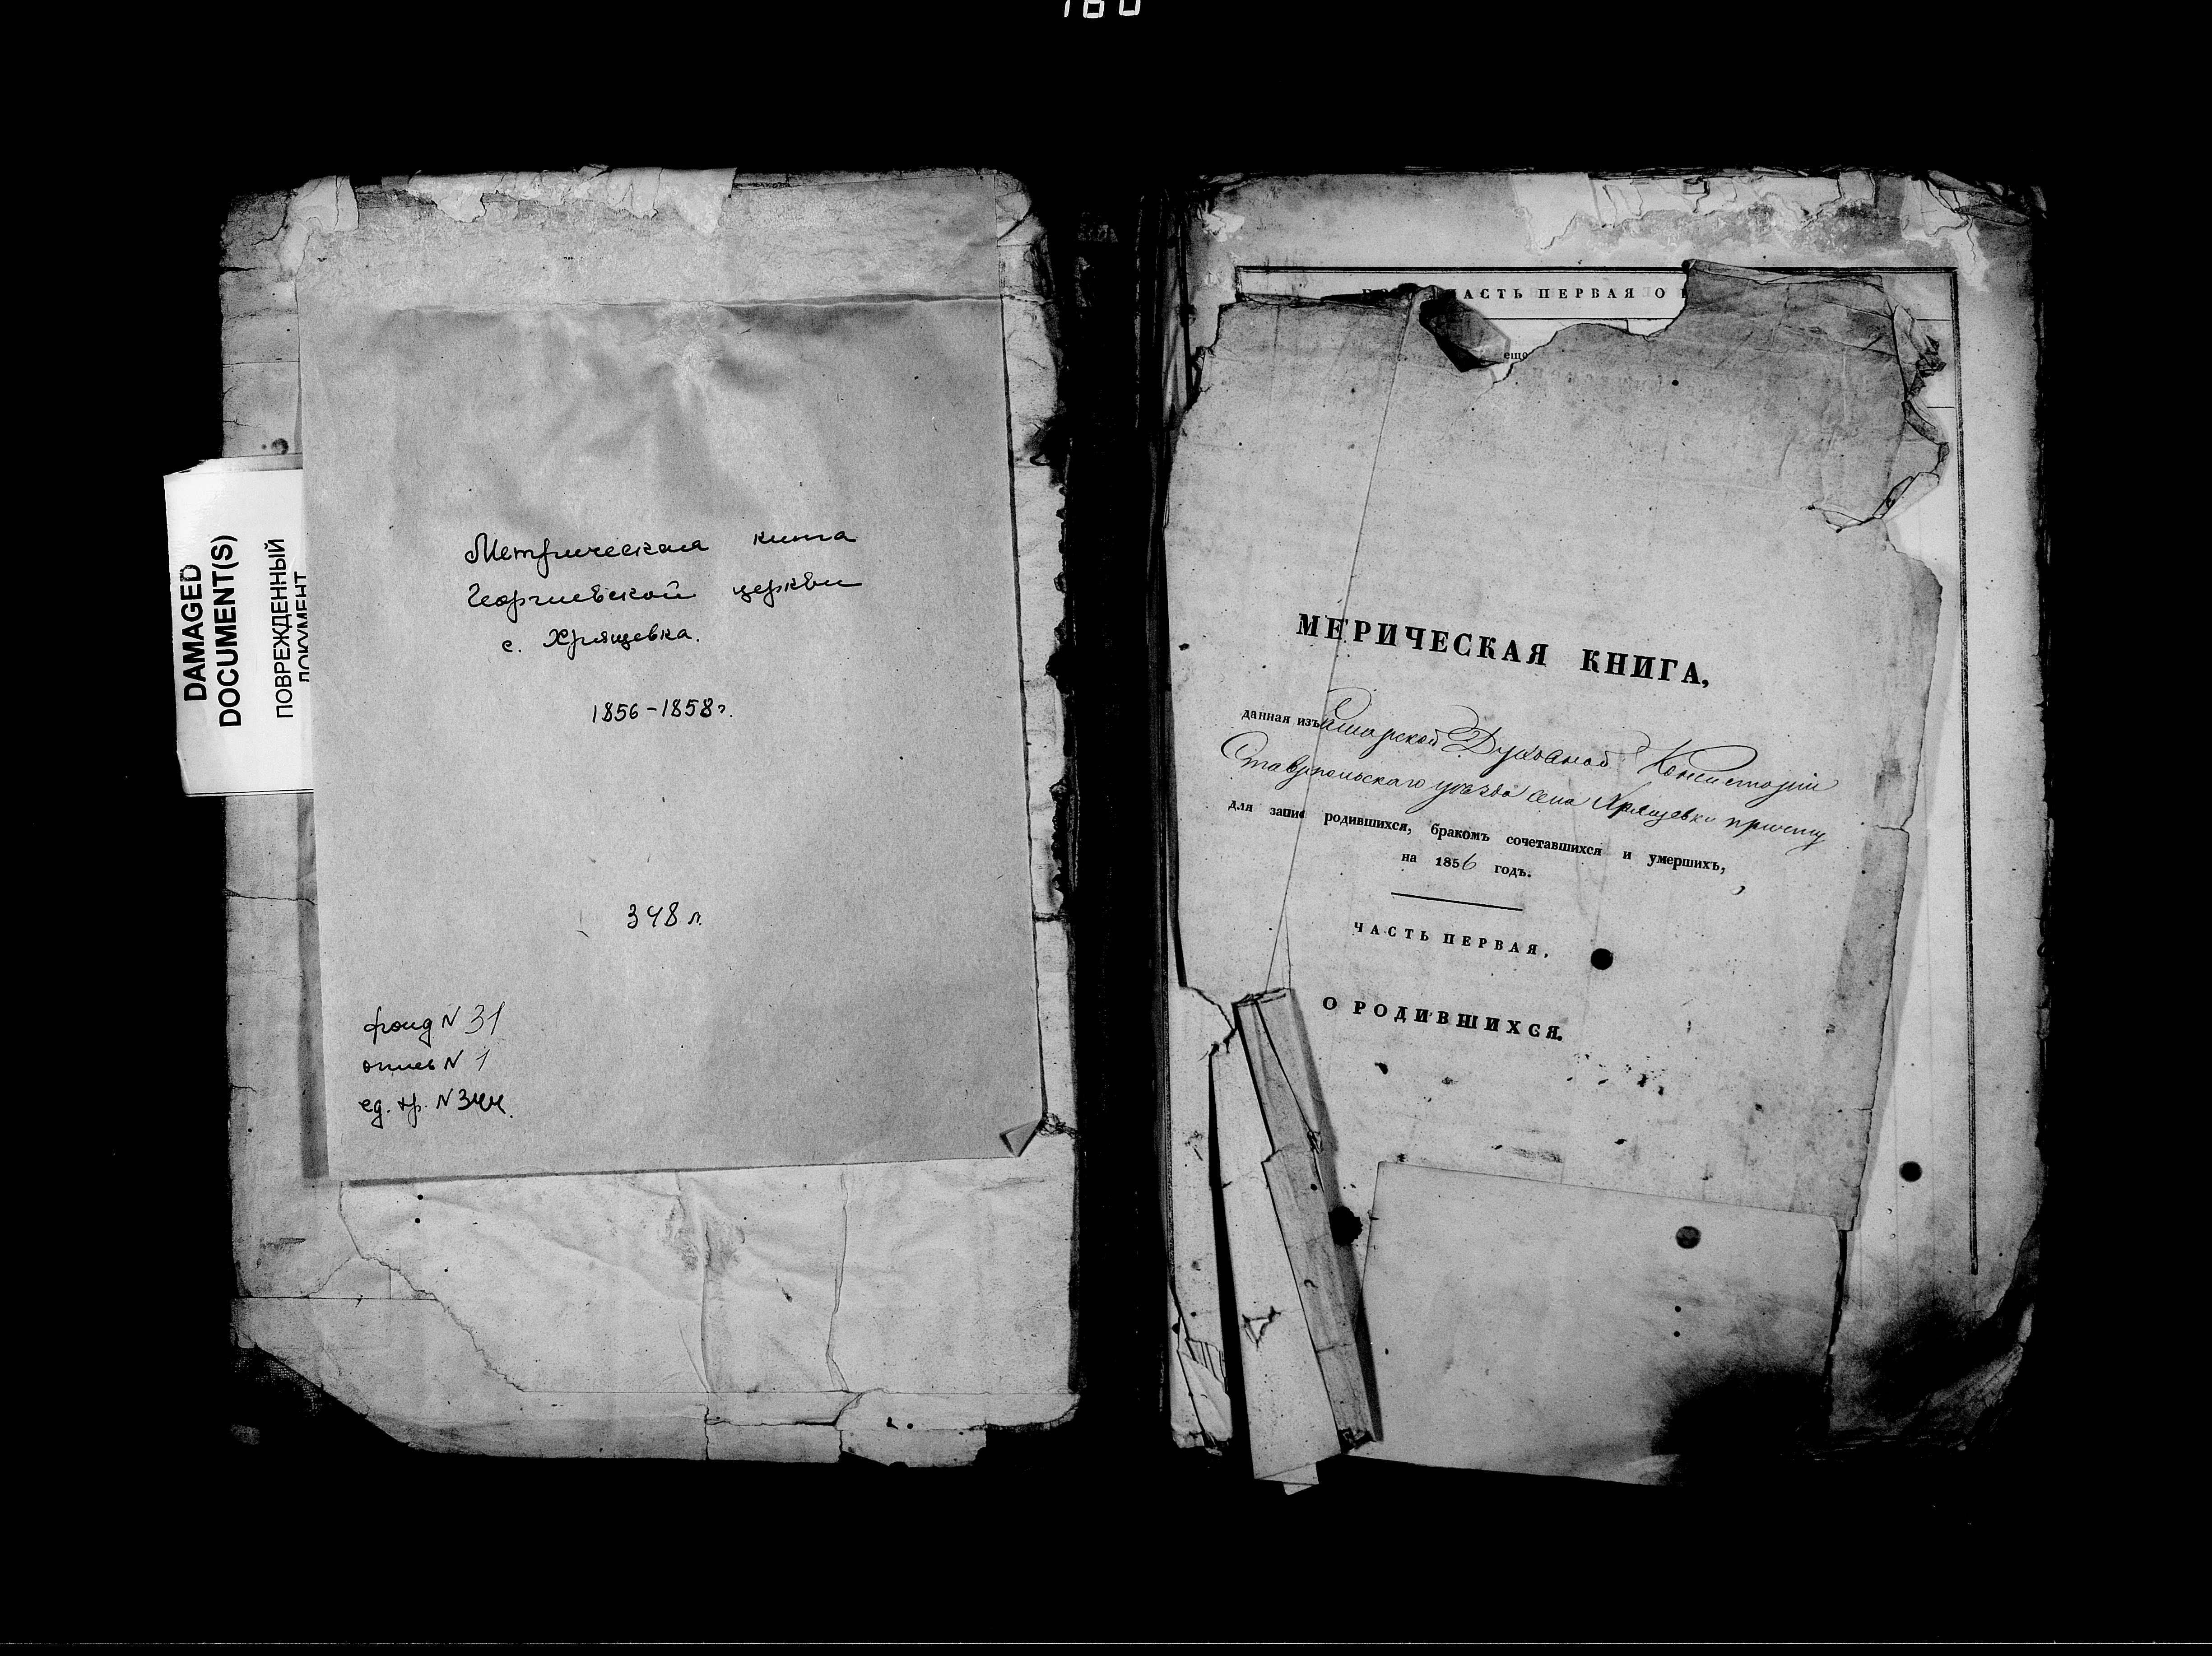 160
DAMAGED
DOCUMENT(S)
ПОВРЕЖДЕННЫЙ
ДОКУМЕНТ
Метрическая книга
Георгиевской церкви
с. Хрящевка.
1856-1858г.
348 л.
фонд N 31
опись N 1
ед. хр. N 344.
ЧАСТЬ ПЕРВАЯ О
МЕРИЧЕСКАЯ КНИГА,
данная изъ Самарской Духовной Консисторіи
Ставропольскаго уѣзда села Хрящевки причту
для запис родившихся, бракомъ сочетавшихся и умершихъ,
на 1856 годъ.
ЧАСТЬ ПЕРВАЯ,
О РОДИВШИХСЯ.